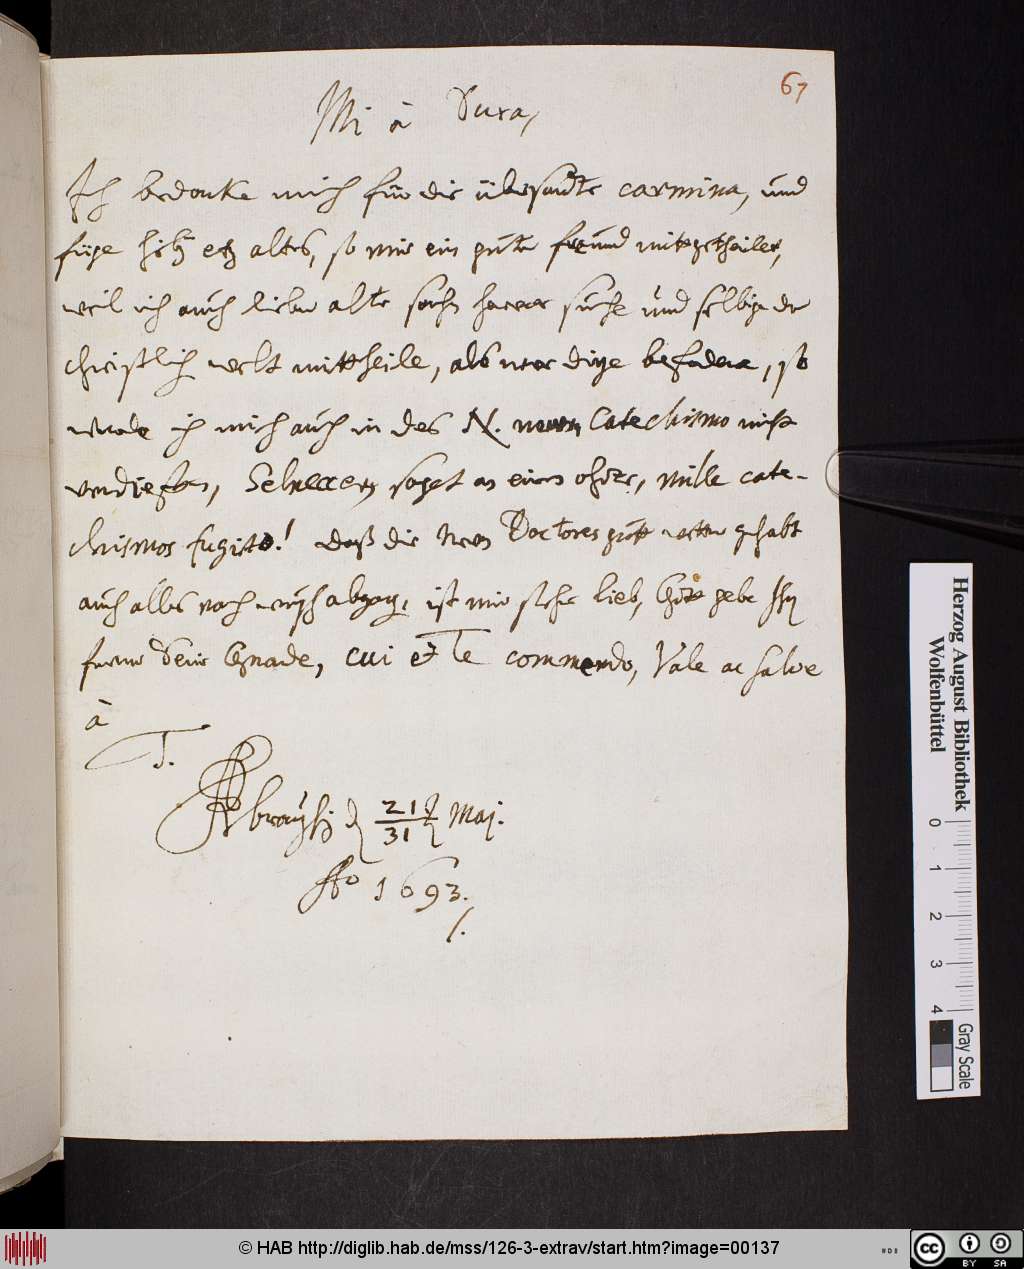 67
Mi à Dura,
Ich bedanke mich für die übersandte carmina, und
füge hibey etz altes, so mir ein guter freund mitgetheilet,
weil ich auch lieber alte sachen suche und selbige der
christlich welt mittheile, als neue dinge befodere, so
werde ich mich auch in des N. neuen Catechismo nicht
verdieffen, Selneccer saget an einem ohrte, mille cate-
chismos fugito! daß die Doctores gut wetter gehabt
auch alles nach wunsch abgang, ist mir sehr lieb, Gott gebe
ferner Seine Gnade, cui et Te commendo, Vale ac salve
à
T.
21
31 Maj.
Ao 1693.
Herzog August Bibliothek
Wolfenbüttel
0 1 2 3 4
Gray Scale
© HAB http://diglib.hab.de/mss/126-3-extrav/start.htm?image=00137
cc BY SA